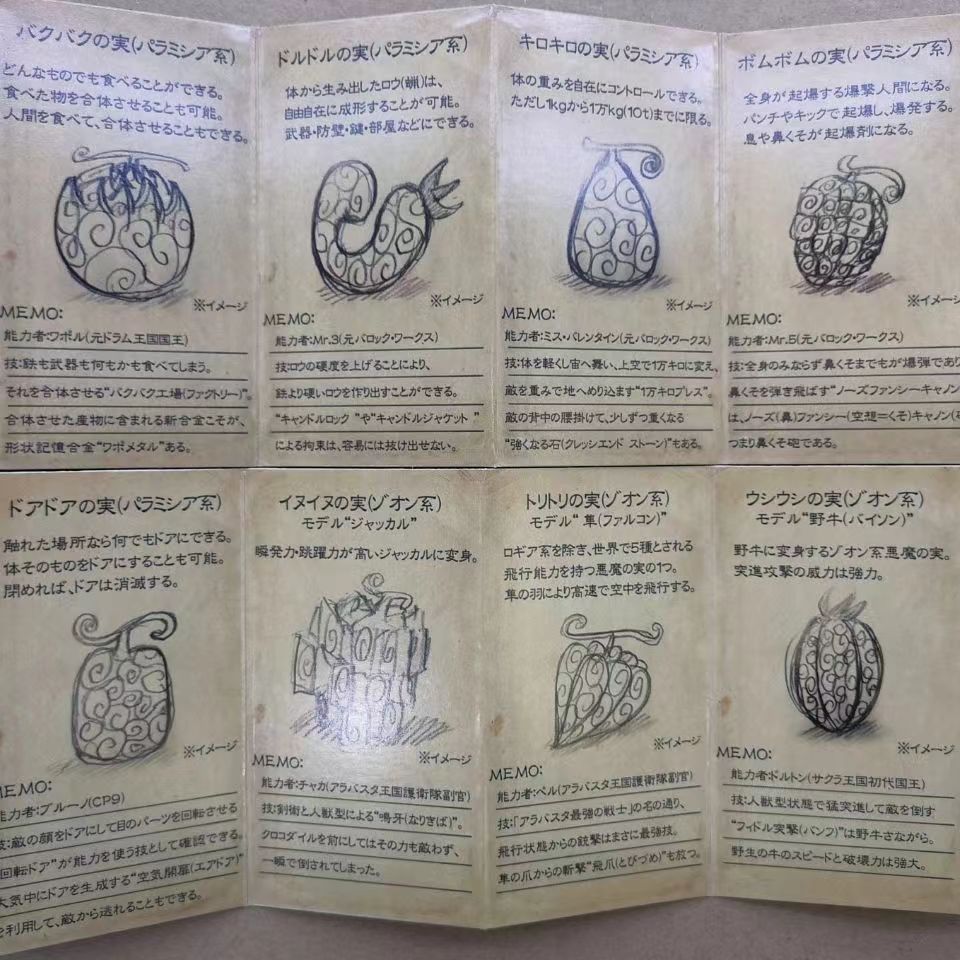 バクバクの実(パラミシア系)
どんなものでも食べることができる。
食べた物を合体させることも可能。
人間を食べて、合体させることもできる。
※イメージ
MEMO:
能力者:ワポル(元ドラム王国国王)
技:鉄も武器も何もかも食べてしまう。
それを合体させる“バクバク工場(ファクトリー)”。
合体させた産物に含まれる新合金こそが、
形状記憶合金“ワポメタル”ある。
ドルドルの実(パラミシア系)
体から生み出したロウ(蝋)は、
自由自在に成形することが可能。
武器・防壁・鍵・部屋などにできる。
※イメージ
MEMO:
能力者:Mr.3(元バロック・ワークス)
技:ロウの硬度を上げることにより、
鉄より硬いロウを作り出すことができる。
“キャンドルロック ”や“キャンドルジャケット ”
による拘束は、容易には抜け出せない。
キロキロの実(パラミシア系)
体の重みを自在にコントロールできる。
ただし1kgから1万kg(10t)までに限る。
※イメージ
MEMO:
能力者:ミス・バレンタイン(元バロック・ワークス)
技:体を軽くし宙へ舞い、上空で1万キロに変え、
敵を重みで地へめり込ます“1万キロプレス”。
敵の背中の腰掛けて、少しずつ重くなる
“強くなる石(クレッシエンド ストーン)”もある。
ボムボムの実(パラミシア系)
全身が起爆する爆撃人間になる。
パンチやキックで起爆し、爆発する。
息や鼻くそが起爆剤になる。
※イメージ
MEMO:
能力者:Mr.5(元バロック・ワークス)
技:全身のみならず鼻くそまでもが爆弾であり
鼻くそを弾き飛ばす“ノーズファンシーキャノン
は、ノーズ(鼻)ファンシー(空想=くそ)キャノン(
つまり鼻くそ砲である。
ドアドアの実(パラミシア系)
触れた場所なら何でもドアにできる。
体そのものをドアにすることも可能。
閉めれば、ドアは消滅する。
※イメージ
MEMO:
能力者:ブルーノ(CP9)
技:敵の顔をドアにして目のパーツを回転させる
回転ドア”が能力を使う技として確認できる。
大気中にドアを生成する“空気開扉(エアドア)”
を利用して、敵から逃れることもできる。
イヌイヌの実(ゾオン系)
モデル“ジャッカル”
瞬発力・跳躍力が高いジャッカルに変身。
※イメージ
MEMO:
能力者:チャカ(アラバスタ王国護衛隊副官)
技:剣術と人獣型による“鳴牙(なりきば)”。
クロコダイルを前にしてはその力も敵わず、
一瞬で倒されてしまった。
トリトリの実(ゾオン系)
モデル“ 隼(ファルコン)”
ロギア系を除き、世界で5種とされる
飛行能力を持つ悪魔の実の1つ。
隼の羽により高速で空中を飛行する。
※イメージ
MEMO:
能力者:ペル(アラバスタ王国護衛隊副官)
技:「アラバスタ最強の戦士」の名の通り、
飛行状態からの銃撃はまさに最強技。
隼の爪からの斬撃“飛爪(とびづめ)”も放つ。
ウシウシの実(ゾオン系)
モデル“野牛(バイソン)”
野牛に変身するゾオン系悪魔の実。
突進攻撃の威力は強力。
※イメージ
MEMO:
能力者:ドルトン(サクラ王国初代国王)
技:人獣型状態で猛突進して敵を倒す
“フィドル突撃(バンフ)”は野牛さながら。
野生の牛のスピードと破壊力は強大。